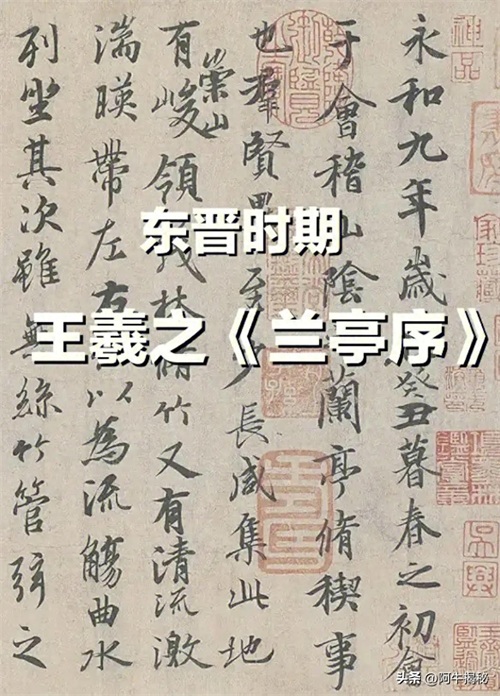 永和九年歲癸丑暮春之初會
于會稽山陰蘭亭脩稧事
也羣賢畢至少長咸集此地
有崇山峻領茂林脩竹又有清流激
湍暎帶左右以為流觴曲水
列坐其次雖無絲竹管弦之
东晋时期
王羲之《兰亭序》
神品
头条 @阿牛揭秘